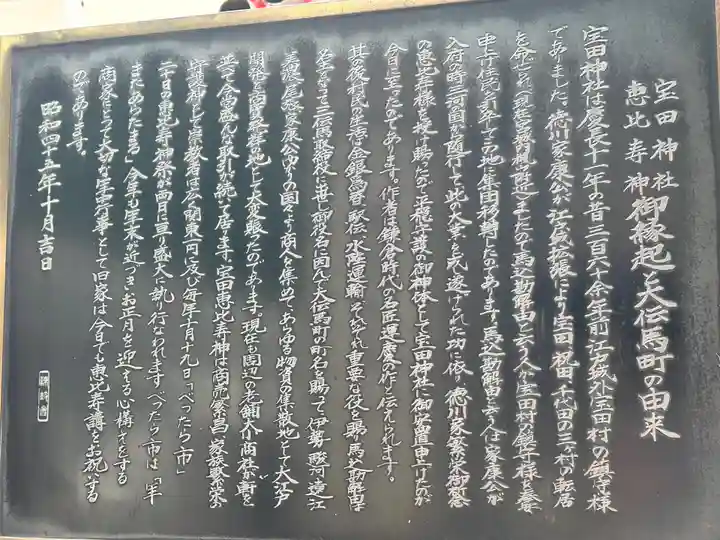 宝田神社
恵比寿神
御縁起と大伝馬町の由来
宝田神社は慶長十一年の昔三百六十余年前江戸城外宝田村の鎮守様
でありました、徳川家康公が江戸城拡張により宝田、祝田、千代田の三ヶ村の転居
を命ぜられ(現在宮城内楓山附近)ましたので馬込勘解由と云う人が宝田村の鎮守様を奉安
申上げ住民を引率してこの地に集団移転したのであります、馬込勘解由と云う人は家康公が
入府の時三河国から随行して此の大業を成し遂げられた功に依り、徳川家繁栄御祈念
の恵比寿様を授け賜わたので平穏守護の御神体として宝田神社に御安置申上げたのが
今日に至ったのであります。作者は鎌倉時代の名匠運慶の作と伝えられます。
其の後村民の生活は金銀為替、駅伝、水陸運輸、それぞれ重要な役を賜り馬込勘解由は
名主となって三伝馬取締役に出世し御役名に因んで大伝馬町の町名を賜って伊勢、駿河、遠江
美濃、尾張、家康公ゆかりの国より商人を集めて、あらゆる物資の集散地として大江戸
開発と商業経済地として大変賑ったのであります。現在も周辺の老舗大小商社が軒を
並べて今尚盛んな取引が続いて居ります。宝田恵比寿神は商売繁昌、家族繁栄の
守護神として崇敬者は広く関東一円に及び毎年十月十九日「べったら市」
二十日の恵比寿神祭が両日に亘り盛大に執り行なわれます、べったら市は、「年
またあらたまる」今年も年末が近づき、お正月を迎える心構えをする
商家にとって大切な年中行事として旧家は今日でも恵比寿講をお祝いする
のであります。
昭和四十五年十月吉日